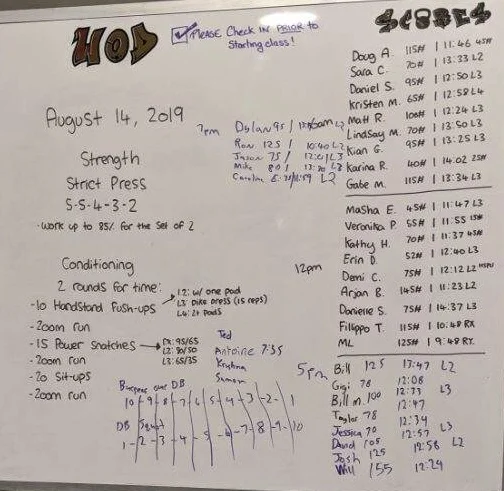 WOD
PLEASE Check IN PRIOR to
Starting class!
August 14, 2019
Strength
Strict Press
5-5-4-3-2
- work up to 85% for the set of 2
Conditioning
2 rounds for time:
-10 Handstand Push-ups
L2: w/ one pad
L3: Pike press (15 reps)
L4: 2+ Pads
-200m run
-15 Power Snatches
RX: 95/65
L2: 80/50
L3: 65/35
-200m run
-20 Sit-ups
-200m run
Ted
Antoine 7:35
Krystna
Simon
Burpees over DB
10-9-8-7-6-5-4-3-2-1
DB Squat
1-2-3-4-5-6-7-8-9-10
7pm
Dylan 95 / L2
Ron 125 / 10:40 L2
Jason 75 / 12:01 L3
Mike 80 / L3
Caroline L2
SCORES
6am
Doug A. 115# | 11:46 45#
Sara C. 70# | 13:33 L2
Daniel S. 95# | 12:50 L3
Kristen M. 65# | 12:58 L4
Matt R. 100# | 12:24 L3
Lindsay M. 70# | 13:50 L3
Kian G. 95# | 13:25 L3
Karina R. 40# | 14:02 25#
Gabe M. 115# | 13:34 L3
12pm
Masha E. 45# | 11:47 L3
Veronika P. 55# | 11:55 15#
Kathy H. 70# | 11:37 45#
Erin D. 52# | 12:40 L3
Demi C. 75# | 12:12 L2 HSPU
Arjan B. 145# | 11:23 L2
Danielle S. 75# | 14:37 L3
Filippo T. 115# | 10:48 RX
ML 125# | 9:48 RX.
5pm
Bill 125 13:47 L2
Gigi 78 12:08
Bill M. 100 12:73 L3
12:47
Taylor 78 12:34
Jessica 70 12:57 L3
David 105 12:58 L2
Josh 125
Will 155 12:29